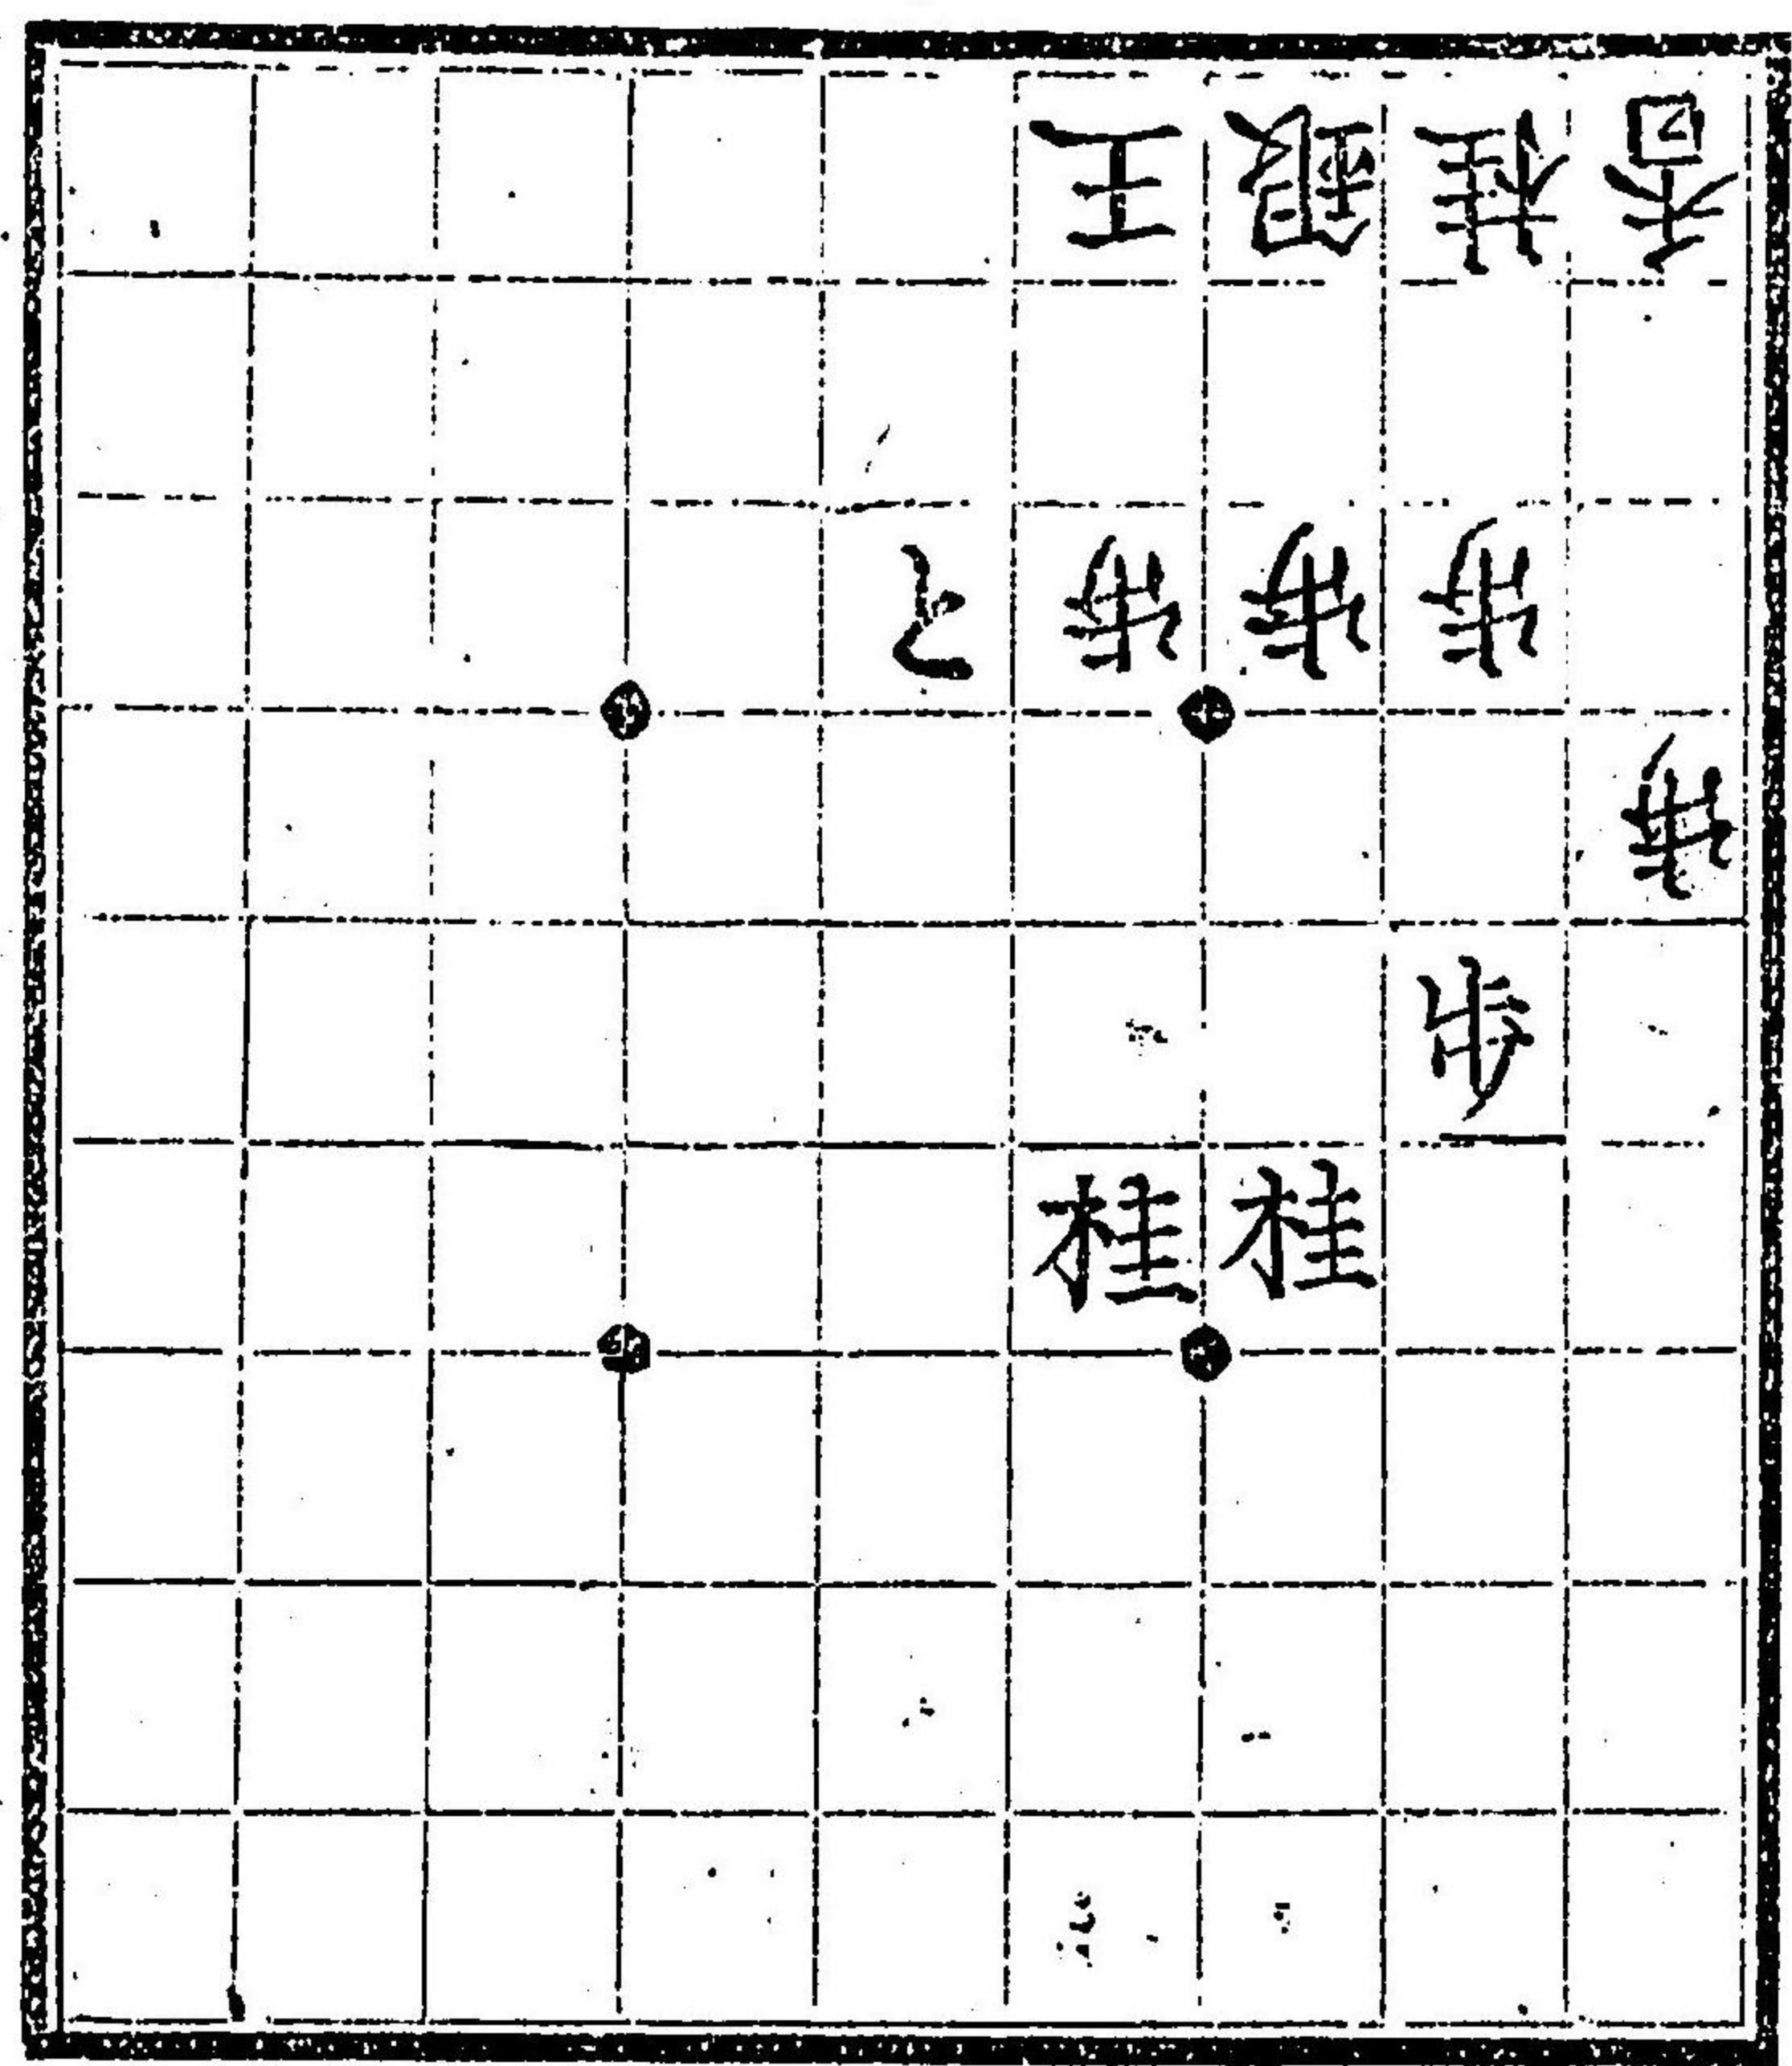 王銀桂香
と歩歩歩
歩
歩
桂桂